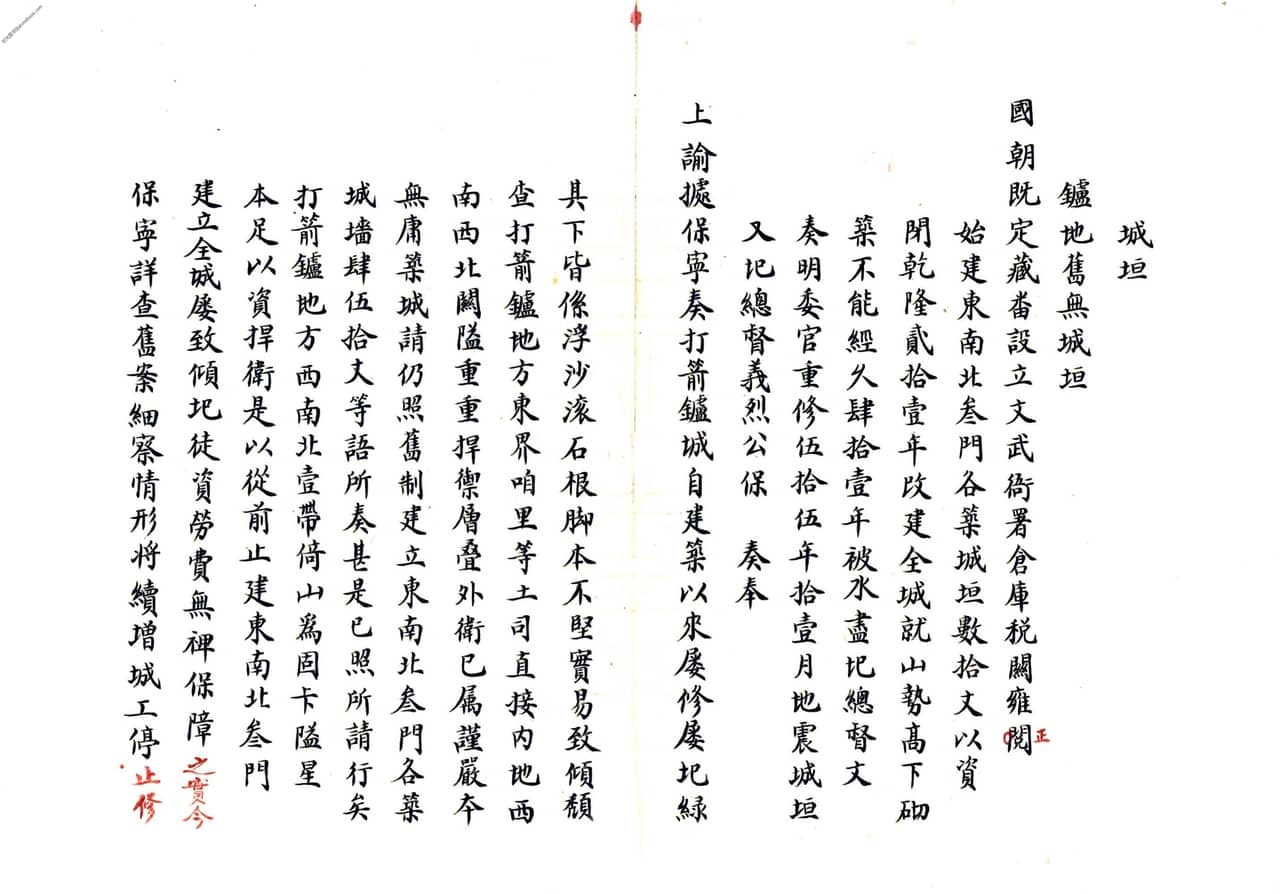 城垣
鑪地舊無城垣
國朝既定藏番設立文武衙署倉庫税關雍閱
正
始建東南北叁門各築城垣數拾丈以資
閉乾隆貳拾壹年改建全城就山勢高下砌
築不能經久肆拾壹年被水盡圮總督文
奏明委官重修伍拾伍年拾壹月地震城垣
又圮總督義烈公保 奏奉
上諭據保寧奏打箭鑪城自建築以來屡修屡圮緑
其下皆係浮沙滚石根脚本不堅實易致傾頽
查打箭鑪地方東界咱里等土司直接内地西
南西北關隘重重捍禦層叠外衛已属謹嚴本
無庸築城請仍照舊制建立東南北叁門各築
城墻肆伍拾丈等語所奏甚是已照所請行矣
打箭鑪地方西南北壹帶倚山爲固卡隘星
本足以資捍衛是以從前止建東南北叁門
建立全城屡致傾圮徒資勞費無裨保障之實今
保寧詳查舊案細察情形将續增城工停止修